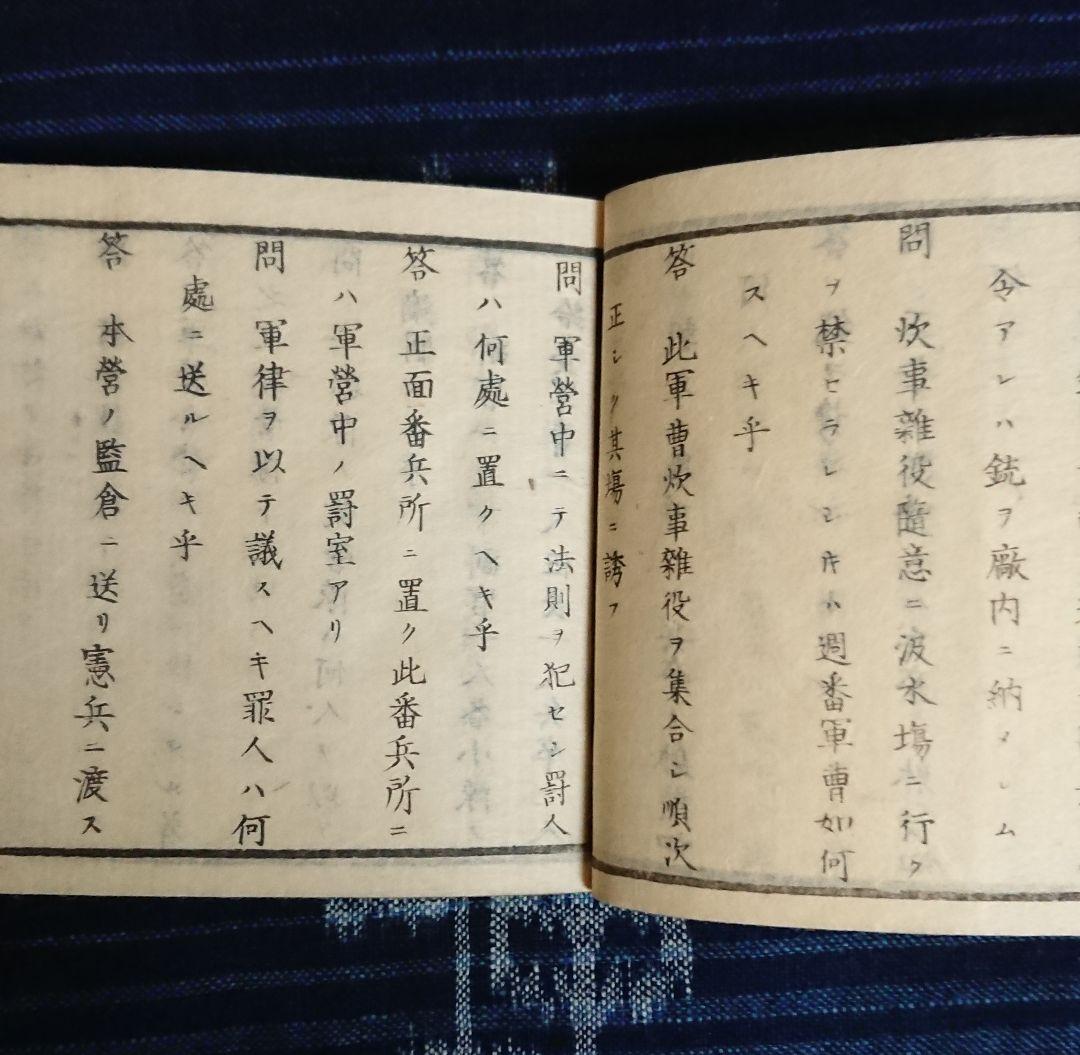 令アレハ銃ヲ廠内ニ納メシム
問　炊事雜役隨意ニ波水場ニ行ク
ヲ禁セラレシ時ハ週番軍曹如何
スヘキ乎
答　此軍曹炊事雜役ヲ集合シ順次
正シク其場ニ誘フ
問　軍營中ニテ法則ヲ犯セシ罰人
ハ何處ニ置クヘキ乎
答　正面番兵所ニ置ク此番兵所ニ
ハ軍營中ノ罰室アリ
問　軍律ヲ以テ議スヘキ罪人ハ何
處ニ送ルヘキ乎
答　本營ノ監倉ニ送リ憲兵ニ渡ス